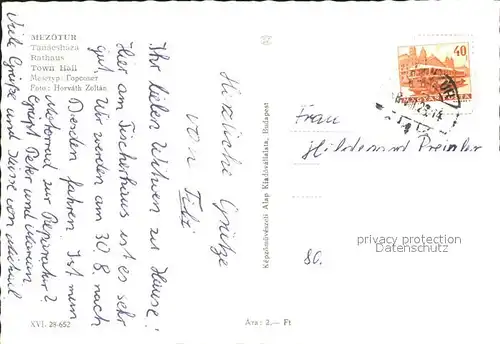 MEZŐTUR
Tanácsháza
Rathaus
Town Hall
Мезетур: Горсовет
Foto: Horváth Zoltán
Ihr lieben Witwen zu Hause!
Hier am Fischerhaus ist es sehr
gut. Wir werden am 30. 8. nach
Dresden fahren. Ist mein
Motorrad zur Reparatur?
Es grüßt Peter und
Viele Grüße und Küsse von Michael
Herzliche Grüße
von
Képzőművészeti Alap Kiadóvállalata, Budapest
40
Frau
Hildemund
80.
privacy protection
watermark
XVI. 28-652
Ára: 2,— Ft